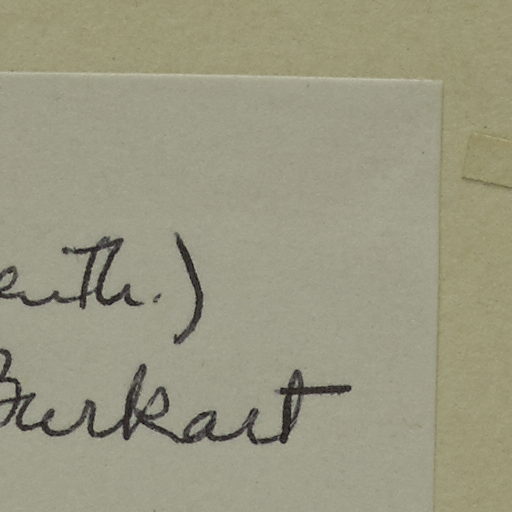 enth.)
Burkart